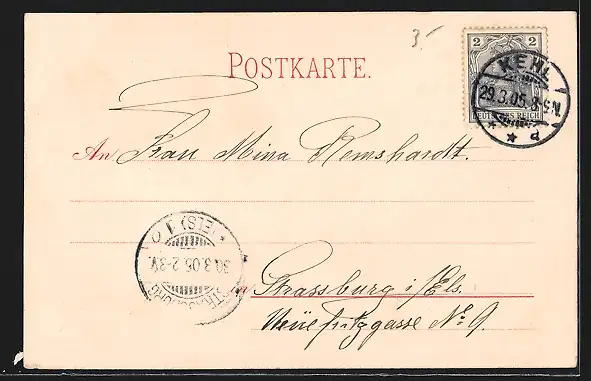 3.-
POSTKARTE.
2 2
DEUTSCHES REICH
KEHL
29.3.05.
* * d
An Frau Mina Remshardt.
(ELS)
30.3.05.2-3V.
STRASSBURG
in Strassburg i/Els.
No. 9.